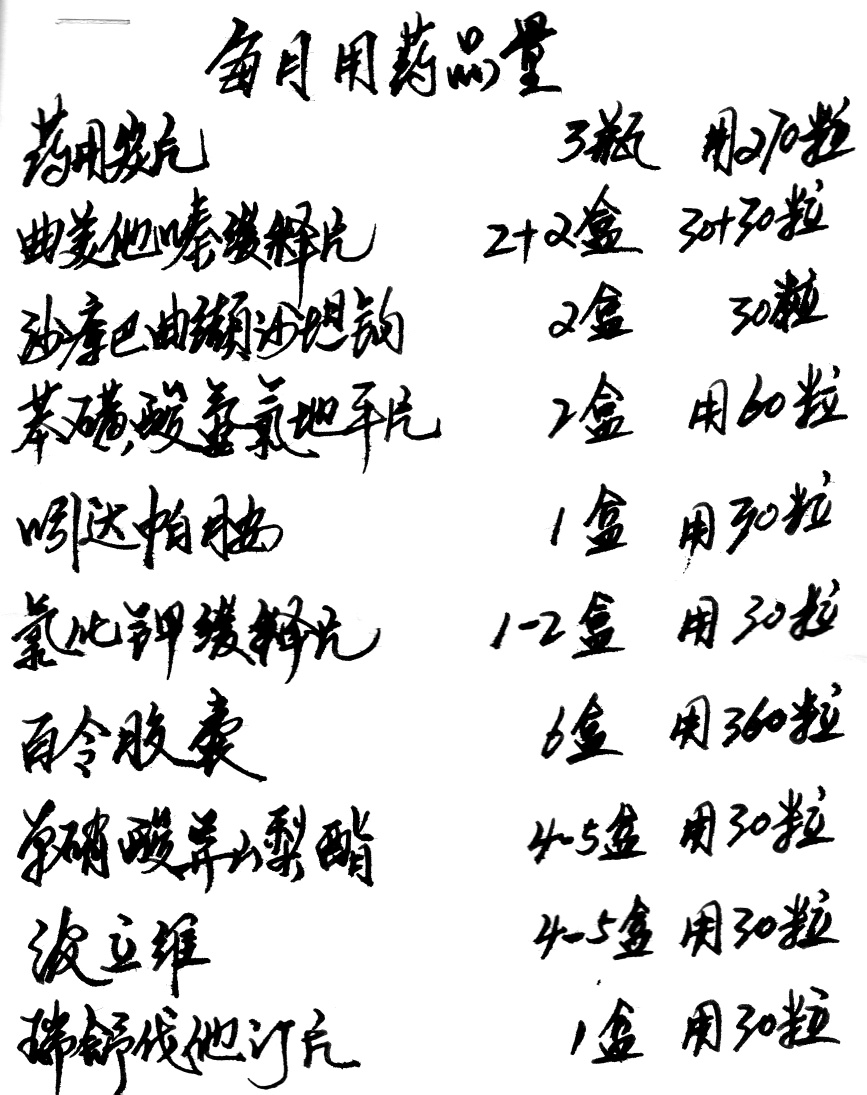 每月用药品量
药用炭片 3瓶 用270粒
曲美他嗪缓释片 2+2盒 30+30粒
沙库巴曲缬沙坦钠 2盒 30粒
苯磺酸氨氯地平片 2盒 用60粒
吲达帕胺 1盒 用30粒
氯化钾缓释片 1-2盒 用30粒
百令胶囊 6盒 用360粒
单硝酸异山梨酯 4-5盒 用30粒
波立维 4-5盒 用30粒
瑞舒伐他汀片 1盒 用30粒